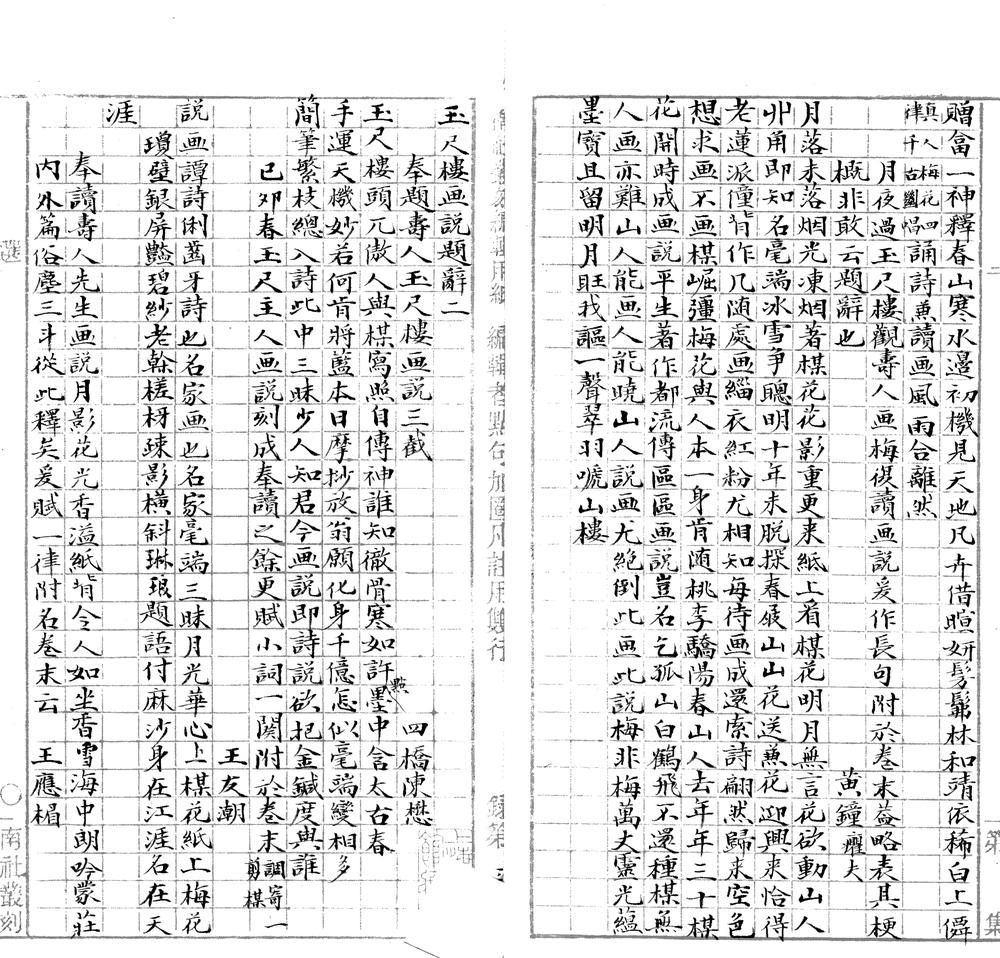 贈畣一神釋春山寒水邊初機見天地凡卉借暄妍髣髴林和靖依稀白上僊
真人梅花四律千古獨唱誦詩兼讀画風雨合離然
月夜過玉尺樓觀壽人画梅復讀画說爰作長句附於卷末益略表其梗
概非敢云題辭也 黃鐘癯夫
月落未落烟光凍烟著楳花花影重更来紙上看楳花明月無言花欲動山人
丱角即知名毫端冰雪爭聰明十年未脱探春屐山山花送兼花迎興来恰得
老蓮派僮背作几随處画緇衣紅粉尤相知每待画成還索詩翩然歸来空色
想求画不画楳崛彊梅花與人本一身肯随桃李驕陽春山人去年年三十楳
花開時成画說平生著作都流傳區區画說豈名乞孤山白鶴飛不還種楳無
人画亦難山人能画人能曉山人說画尤絕倒此画此說梅非梅萬丈靈光蘊
墨寶且留明月賍我謳一聲翠羽唬山樓
玉尺樓画說題辭二
奉題壽人玉尺樓画說三截 四橋陳懋
玉尺樓頭兀傲人與楳寫照自傳神誰知徹骨寒如許點墨中含太古春
手運天機妙若何肯將藍本日摩抄放翁願化身千億怎似毫端變相多
簡筆繁枝總入詩此中三昧少人知君今画說即詩說欲把金鍼度與誰
己夘春玉尺主人画說刻成奉讀之餘更賦小詞一闋附於卷末調寄一剪楳
王友潮
說画譚詩俐齒牙詩也名家画也名家毫端三昧月光華心上楳花紙上梅花
瓊璧銀屏豔碧紗老榦槎枒疎影橫斜琳琅題語付麻沙身在江涯名在天
涯
奉讀壽人先生画說月影花光香溢紙背令人如坐香雪海中朗吟蒙莊
內外篇俗塵三斗從此釋矣爰賦一律附名卷末云 王應楣
選
南社叢刻
集